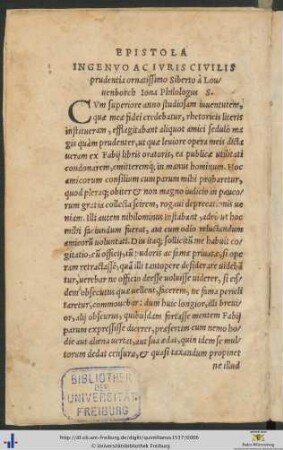 EPISTOLA
INGENVO AC IVRIS CIVILIS
prudentia ornatissimo Siberto à Lou-
uenborch Iona Philologus S.
CVm superiore anno studiosam iuuentutem,
quæ meæ fidei credebatur, rhetoricis literis
instituerem, efflagitabant aliquot amici sedulò ma
gis quàm prudenter, ut quæ leuiore opera meis dicta
ueram ex Fabij libris oratorijs, ea publicæ utilitati
condonarem, emitteremq; in manus hominum. Hoc
amicorum consilium cum parum mihi probaretur,
quòd pleraq; obiter & non magno iudicio in pauco-
rum gratiã collecta scirem, rogaui deprecatus ue
niam. Illi autem nihilominus instabant, adeò ut hoc
mihi faciundum fuerat, aut cum odio reluctandum
amicorũ uoluntati. Diu itaq; sollicitũ me habuit co-
gitatio, cũ officij, tũ pudoris ac famæ priuatæ, si ope
ram retractassẽ, quã illi tantopere desiderare uideban
tur, uerebar ne officio deesse uoluisse uiderer, si eis-
dem obsecutus quæ uellent, facerem, ne fama pericli
taretur, commouebar: dum huic longior, illi breui-
or, alij obscurus, quibusdam fortasse mentem Fabij
parum expressisse dicerer, præsertim cum nemo ho-
die aut aliena uertat, aut sua ædat, quin idem se mul-
torum dedat censuræ, & quasi taxandum propinet
ne illud
BIBLIOTHEK
DER
UNIVERSITÄT
FREIBURG
http://dl.ub.uni-freiburg.de/diglit/quintilianus1537/0000
© Universitätsbibliothek Freiburg
Baden-Württemberg